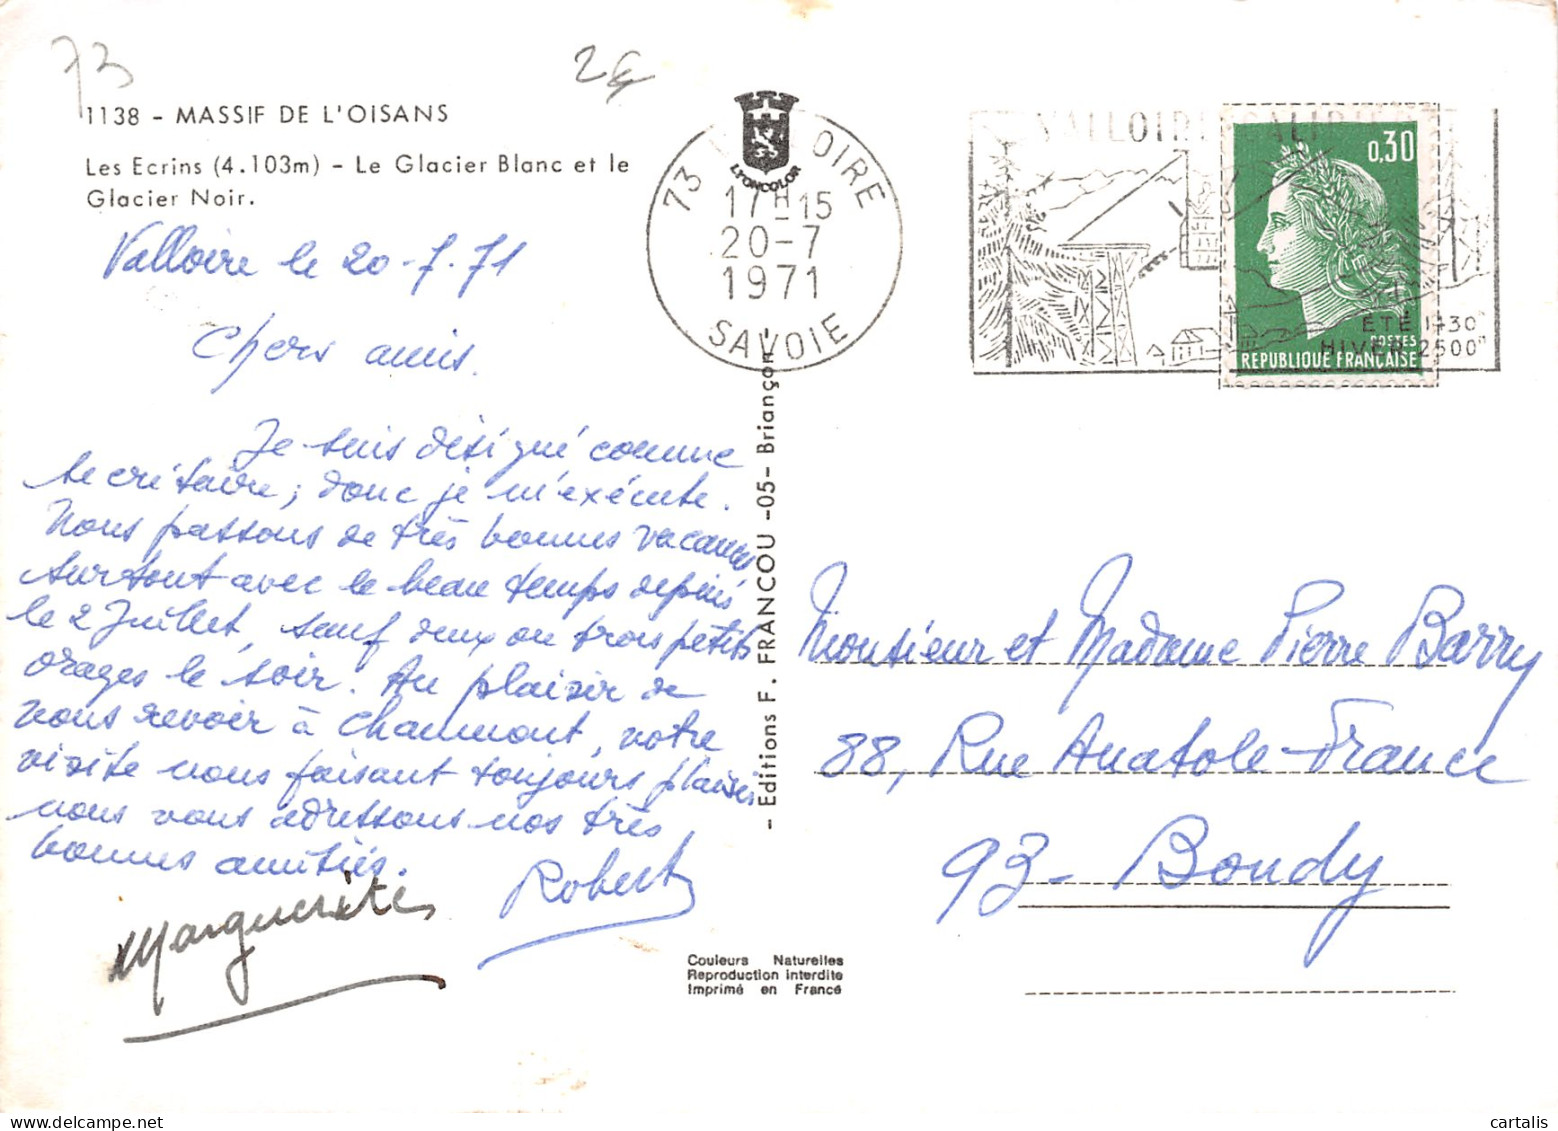 73
2€
1138 - MASSIF DE L'OISANS
Les Ecrins (4.103m) - Le Glacier Blanc et le
Glacier Noir.
Valloire le 20-7-71
Chers amis.
Je suis désigné comme
secrétaire; donc je m'exécute.
Nous passons de très bonnes vacances
surtout avec le beau temps depuis
le 2 Juillet, sauf deux ou trois petits
orages le soir. Au plaisir de
vous revoir à Chaumont, votre
visite nous faisant toujours plaisir
nous vous adressons nos très
bonnes amitiés.
Marguerite
Robert
LYONCOLOR
73 OIRE
17H15
20-7
1971
SAVOIE
VALLOIRE GALIBIER
ÉTÉ 1430m
HIVER 2500m
0,30
POSTES
REPUBLIQUE FRANÇAISE
- Editions F. FRANCOU -05- Briançon -
Monsieur et Madame Pierre Barry
88, Rue Anatole-France
93- Bondy
Couleurs Naturelles
Reproduction interdite
Imprimé en France
cartalis